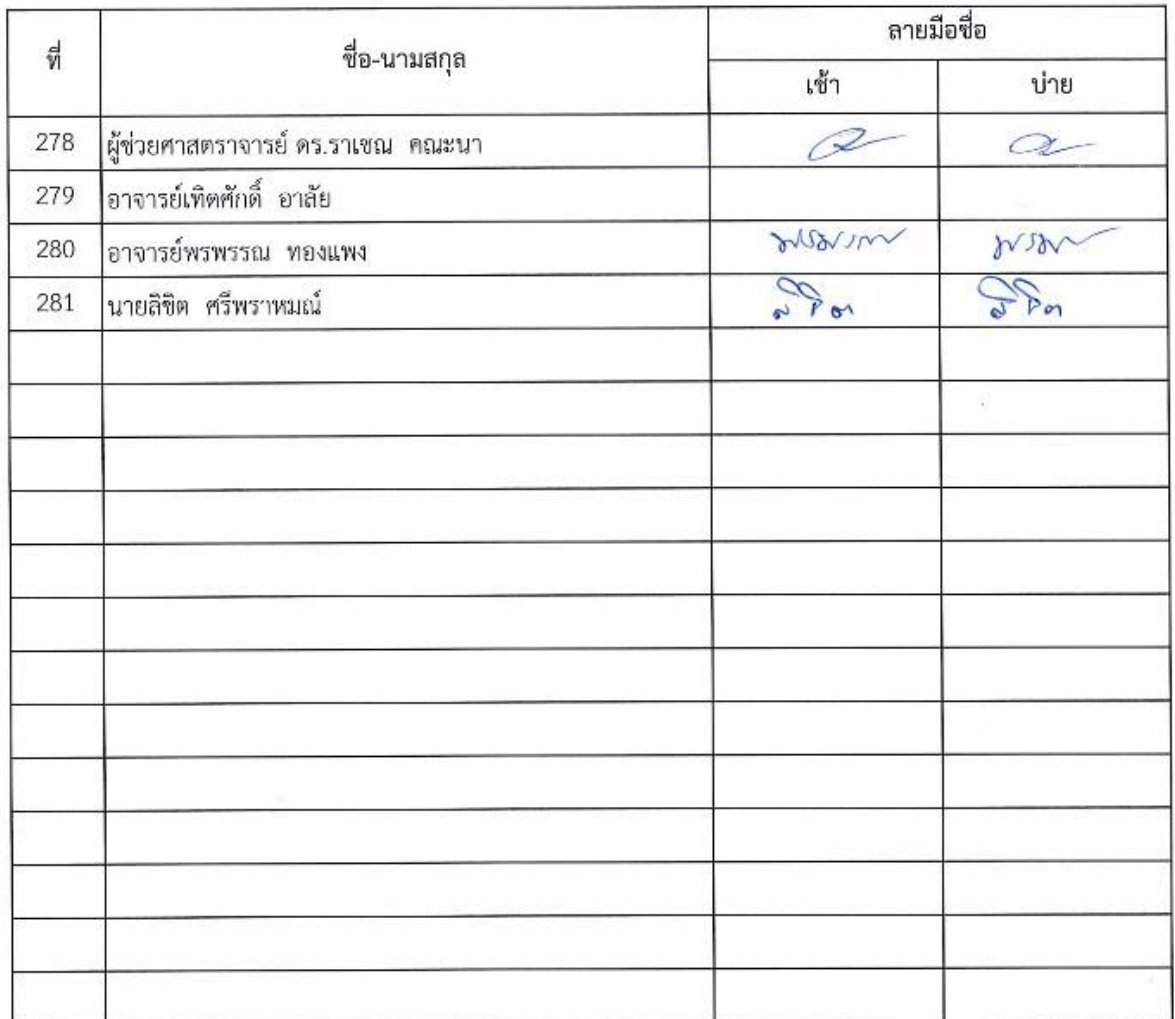 ที่ ชื่อ-นามสกุล ลายมือชื่อ
เช้า บ่าย
278 ผู้ช่วยศาสตราจารย์ ดร.ราเชณ คณะนา
279 อาจารย์เทิดศักดิ์ อาลัย
280 อาจารย์พรพรรณ ทองแพง
281 นายลิขิต ศรีพราหมณ์ ลิขิต ลิขิต